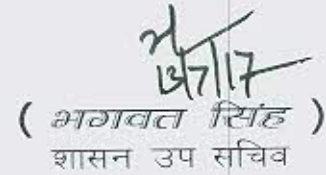 13/7/17
( भगवत सिंह )
शासन उप सचिव